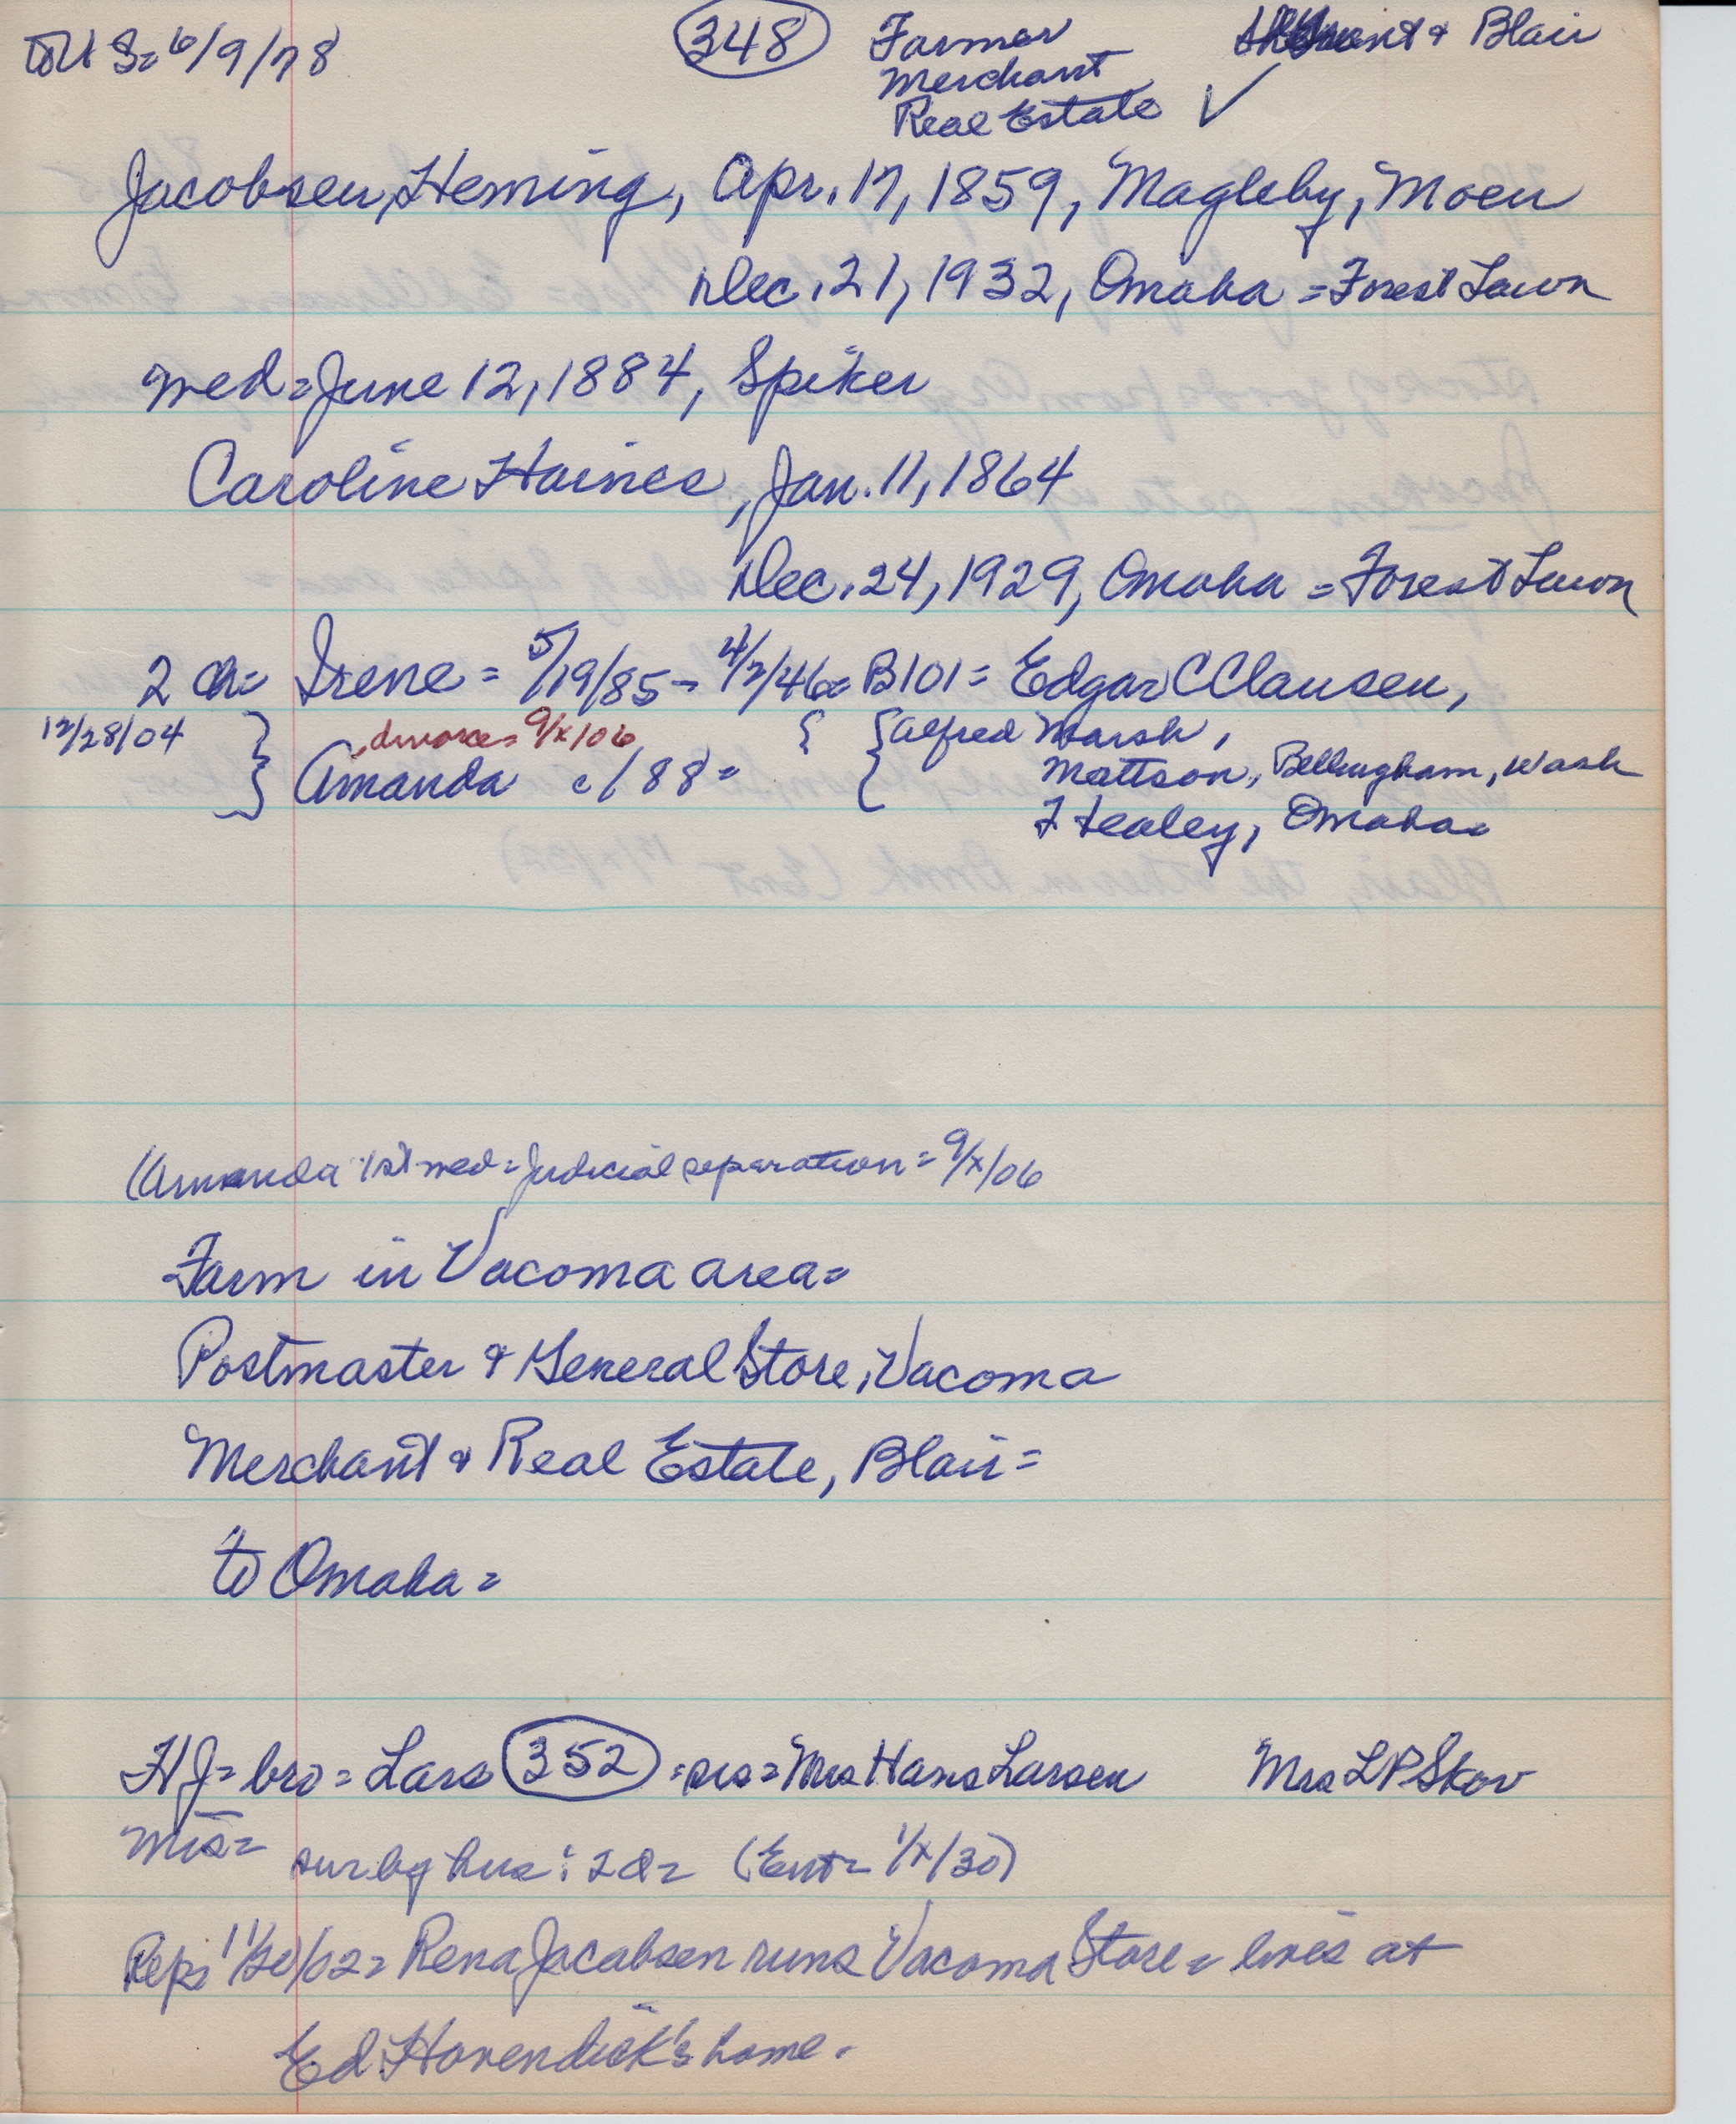 to U S = 6/9/78 348 Farmer & Blair
Merchant
Real Estate ✓
Jacobsen, Heming, Apr. 17, 1859, Magleby, Moen
Dec. 21, 1932, Omaha = Forest Lawn
med = June 12, 1884, Spiker
Caroline Haines, Jan. 11, 1864
Dec. 24, 1929, Omaha = Forest Lawn
2 ch = Irene = 5/19/85 - 4/2/46 = B101 = Edgar C Clausen,
12/28/04 } , divorce = 9/x/06 { { Alfred Marsh,
} Amanda c/88 = { Mattson, Bellingham, Wash
Healey, Omaha =
(Amanda 1st med = judicial separation = 9/x/06
Farm in Vacoma area =
Postmaster & General Store, Vacoma
Merchant & Real Estate, Blair =
to Omaha =
HJ = bro = Lars 352 = sis = Mrs Hans Larsen Mrs L P Skov
Mrs = sur by hus : 2 d = (Ent = 1/x/30)
Rep: 11/20/02 = Rena Jacobsen runs Vacoma Store = lives at
Ed Hovendick's home.